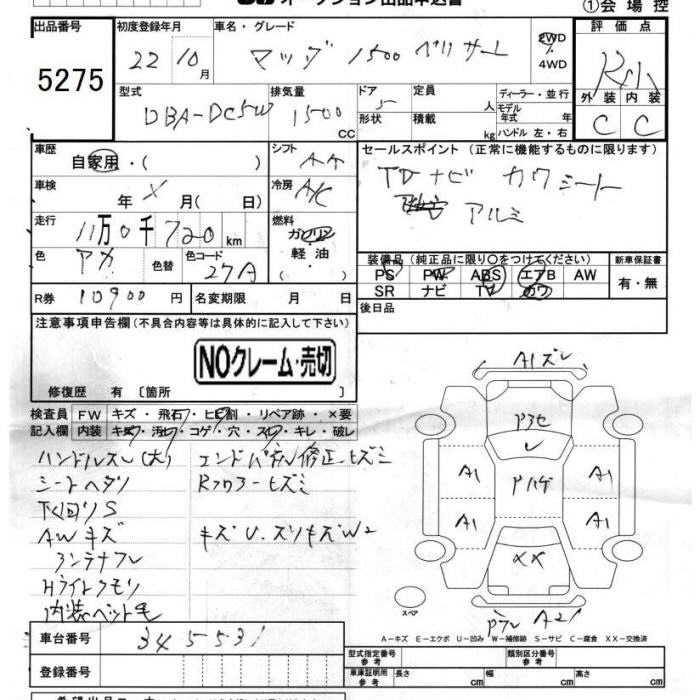 オークション出品申込書
①会場控
出品番号 初度登録年月 車名・グレード 評価点
5275 22 10月 マツダ 1500 ベリサ L 2WD 4WD
型式 排気量 ドア 定員 ディーラー・並行 外装 内装
DBA-DC5W 1500 CC 5 人 モデル年式 年式 C C
形状 積載 kg ハンドル 左・右
車歴 自家用・( ) シフト AT セールスポイント (正常に機能するものに限ります)
車検 年 X 月( 日) 冷房 A/C TV ナビ カワシート
アルミ
走行 11万0千720km 燃料 ガソリン・軽油・( )
色 アカ 色替 色コード 27A
装備品 (純正品に限り〇をつけてください) 新車保証書
PS PW ABS エアB AW 有・無
SR ナビ TV カワ
R券 10900円 名変期限 月 日 後日品
注意事項申告欄 (不具合内容等は具体的に記入して下さい)
NOクレーム・売切
修復歴 有 〔箇所
検査員記入欄 FW キズ・飛石・ヒビ割・リペア跡・×要
内装 キズ・汚れ・コゲ・穴・スレ・キレ・破レ
ハンドルスレ(大) エンドパネル修正・ヒズミ
シートヘタリ Rフロアーヒズミ
下回りS
AWキズ キズU.ズリキズW2
アンテナフレ
Hライトクモリ
内装ペット毛
A1ズレ
A1 A1
A1 A1
XX
A2
スペア
A－キズ E－エクボ U－凹み W－補修跡 S－サビ C－腐食 XX－交換済
車台番号 345531
登録番号
型式指定番号 参考 類別区分番号 参考
車庫証明用 参考 長さ cm 幅 cm 高さ cm
希望出品コーナー